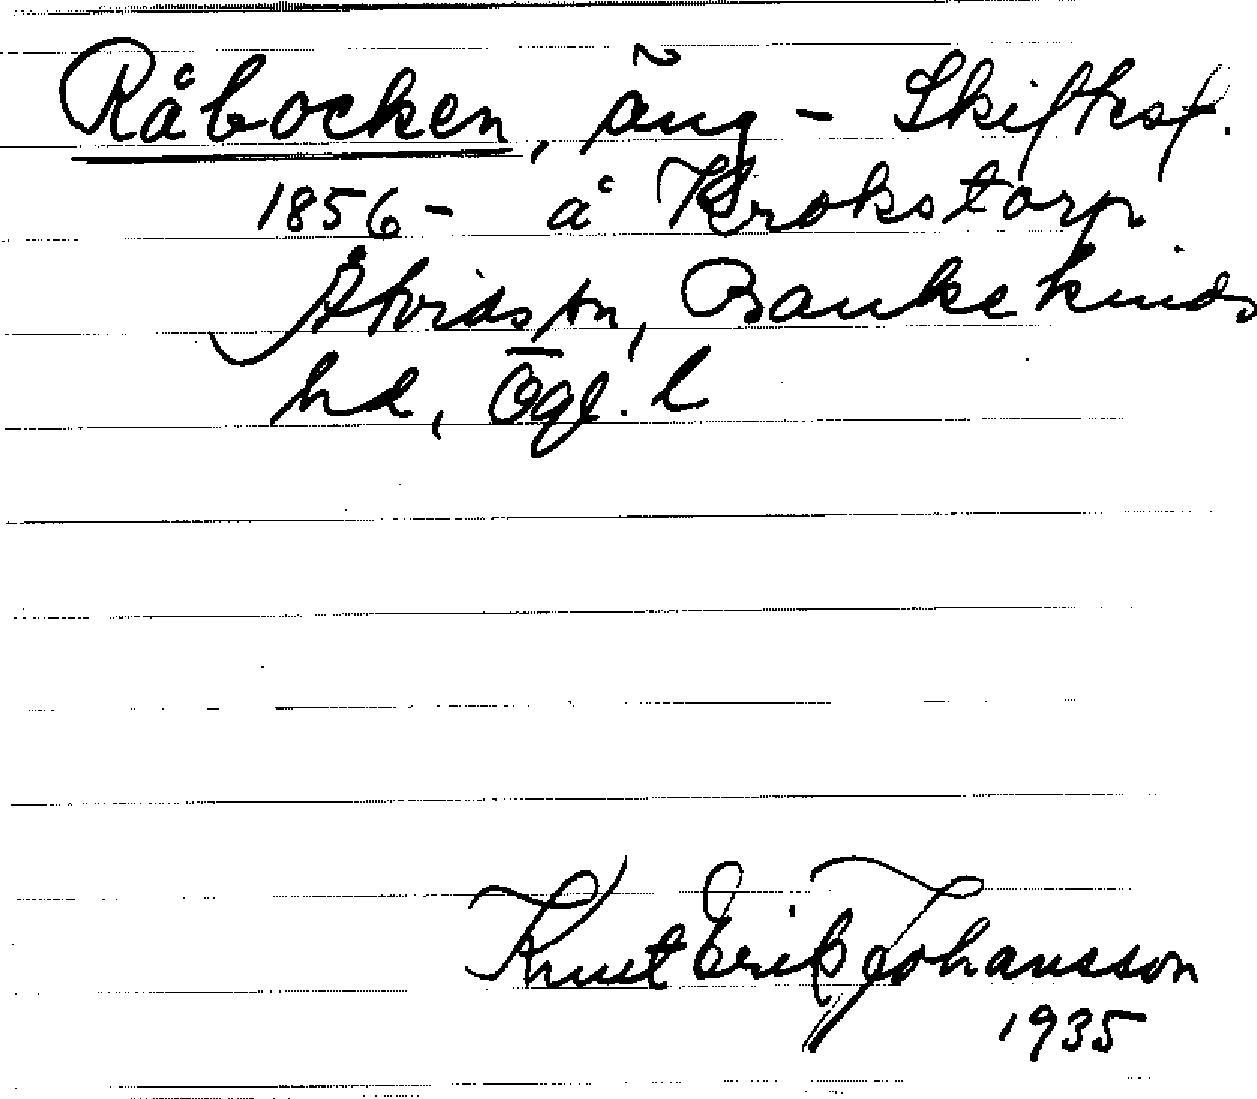 Råbocken, äng - Skifteskf.
1856 - å Krokstorp
Åtvids sn, Bankekinds
hd, Ögl. l
Knut Erik Johansson
1935